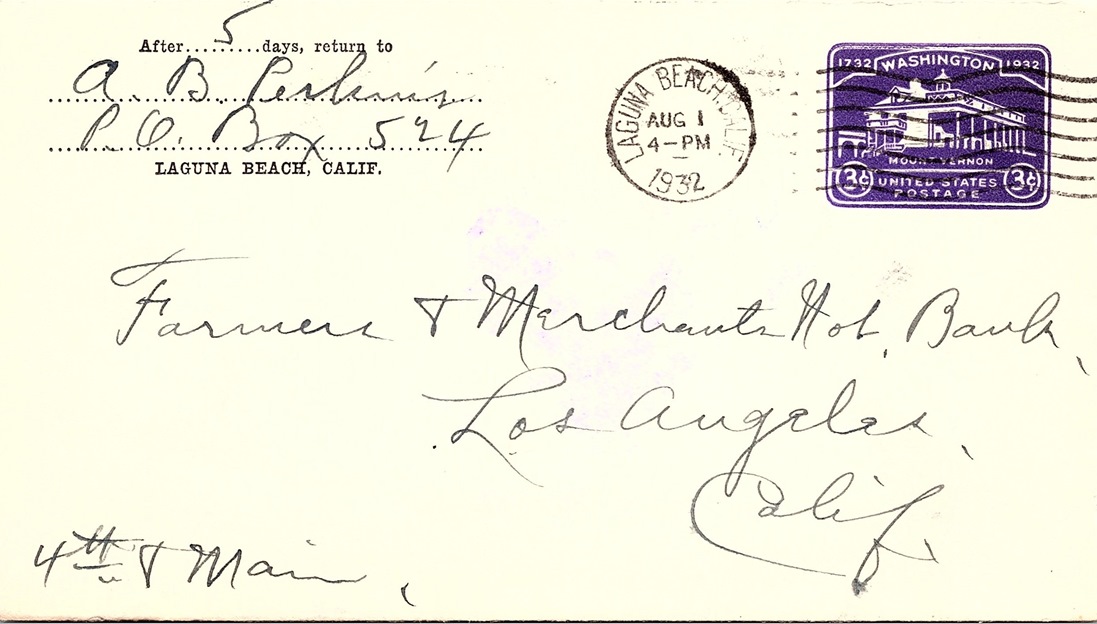 After.....5.....days, return to
A. B. Perkins
P.O. Box 524
LAGUNA BEACH, CALIF.
LAGUNA BEACH, CALIF.
AUG 1
4-PM
1932
1732 WASHINGTON 1932
MOUNT VERNON
3¢ UNITED STATES 3¢
POSTAGE
Farmers & Merchants Nat. Bank,
Los Angeles,
Calif.
4th & Main,